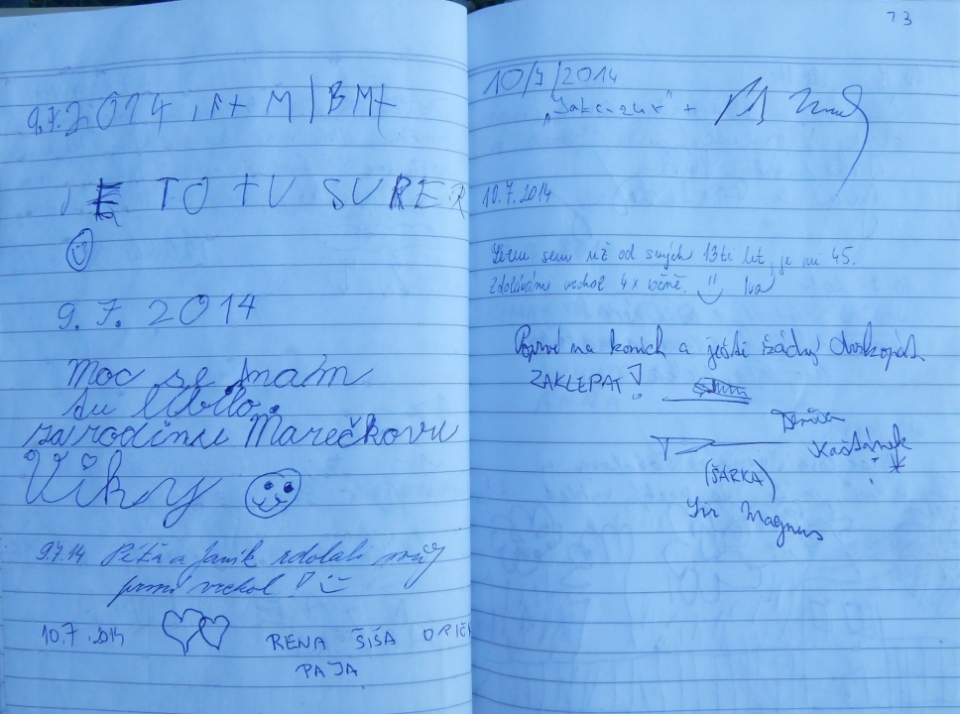 9.7.2014
JE TO TU SUPER
9. 7. 2014
Moc se nám
tu líbilo.
za rodinu Marečkovu
Viky
9.7.14 Péťa a Janik zdolali svůj
první vrchol!
10.7.2014 RENA ŠÍŠA
PAJA
73
10/7/2014
+
10.7.2014
sem už od svých 13ti let, je mi 45.
Zdolávám vrchol 4x ročně. Iva
Poprvé na koních a ještě žádný
ZAKLEPAT!
Kaštánek
(ŠÁRKA)
Sir Magnus